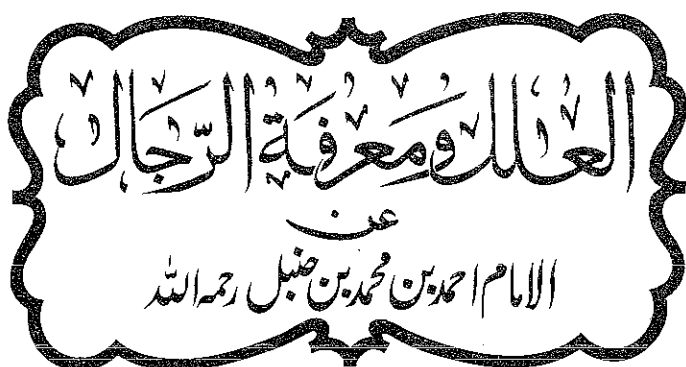 العلل ومعرفة الرجال
عن
الامام احمد بن محمد بن حنبل رحمه الله